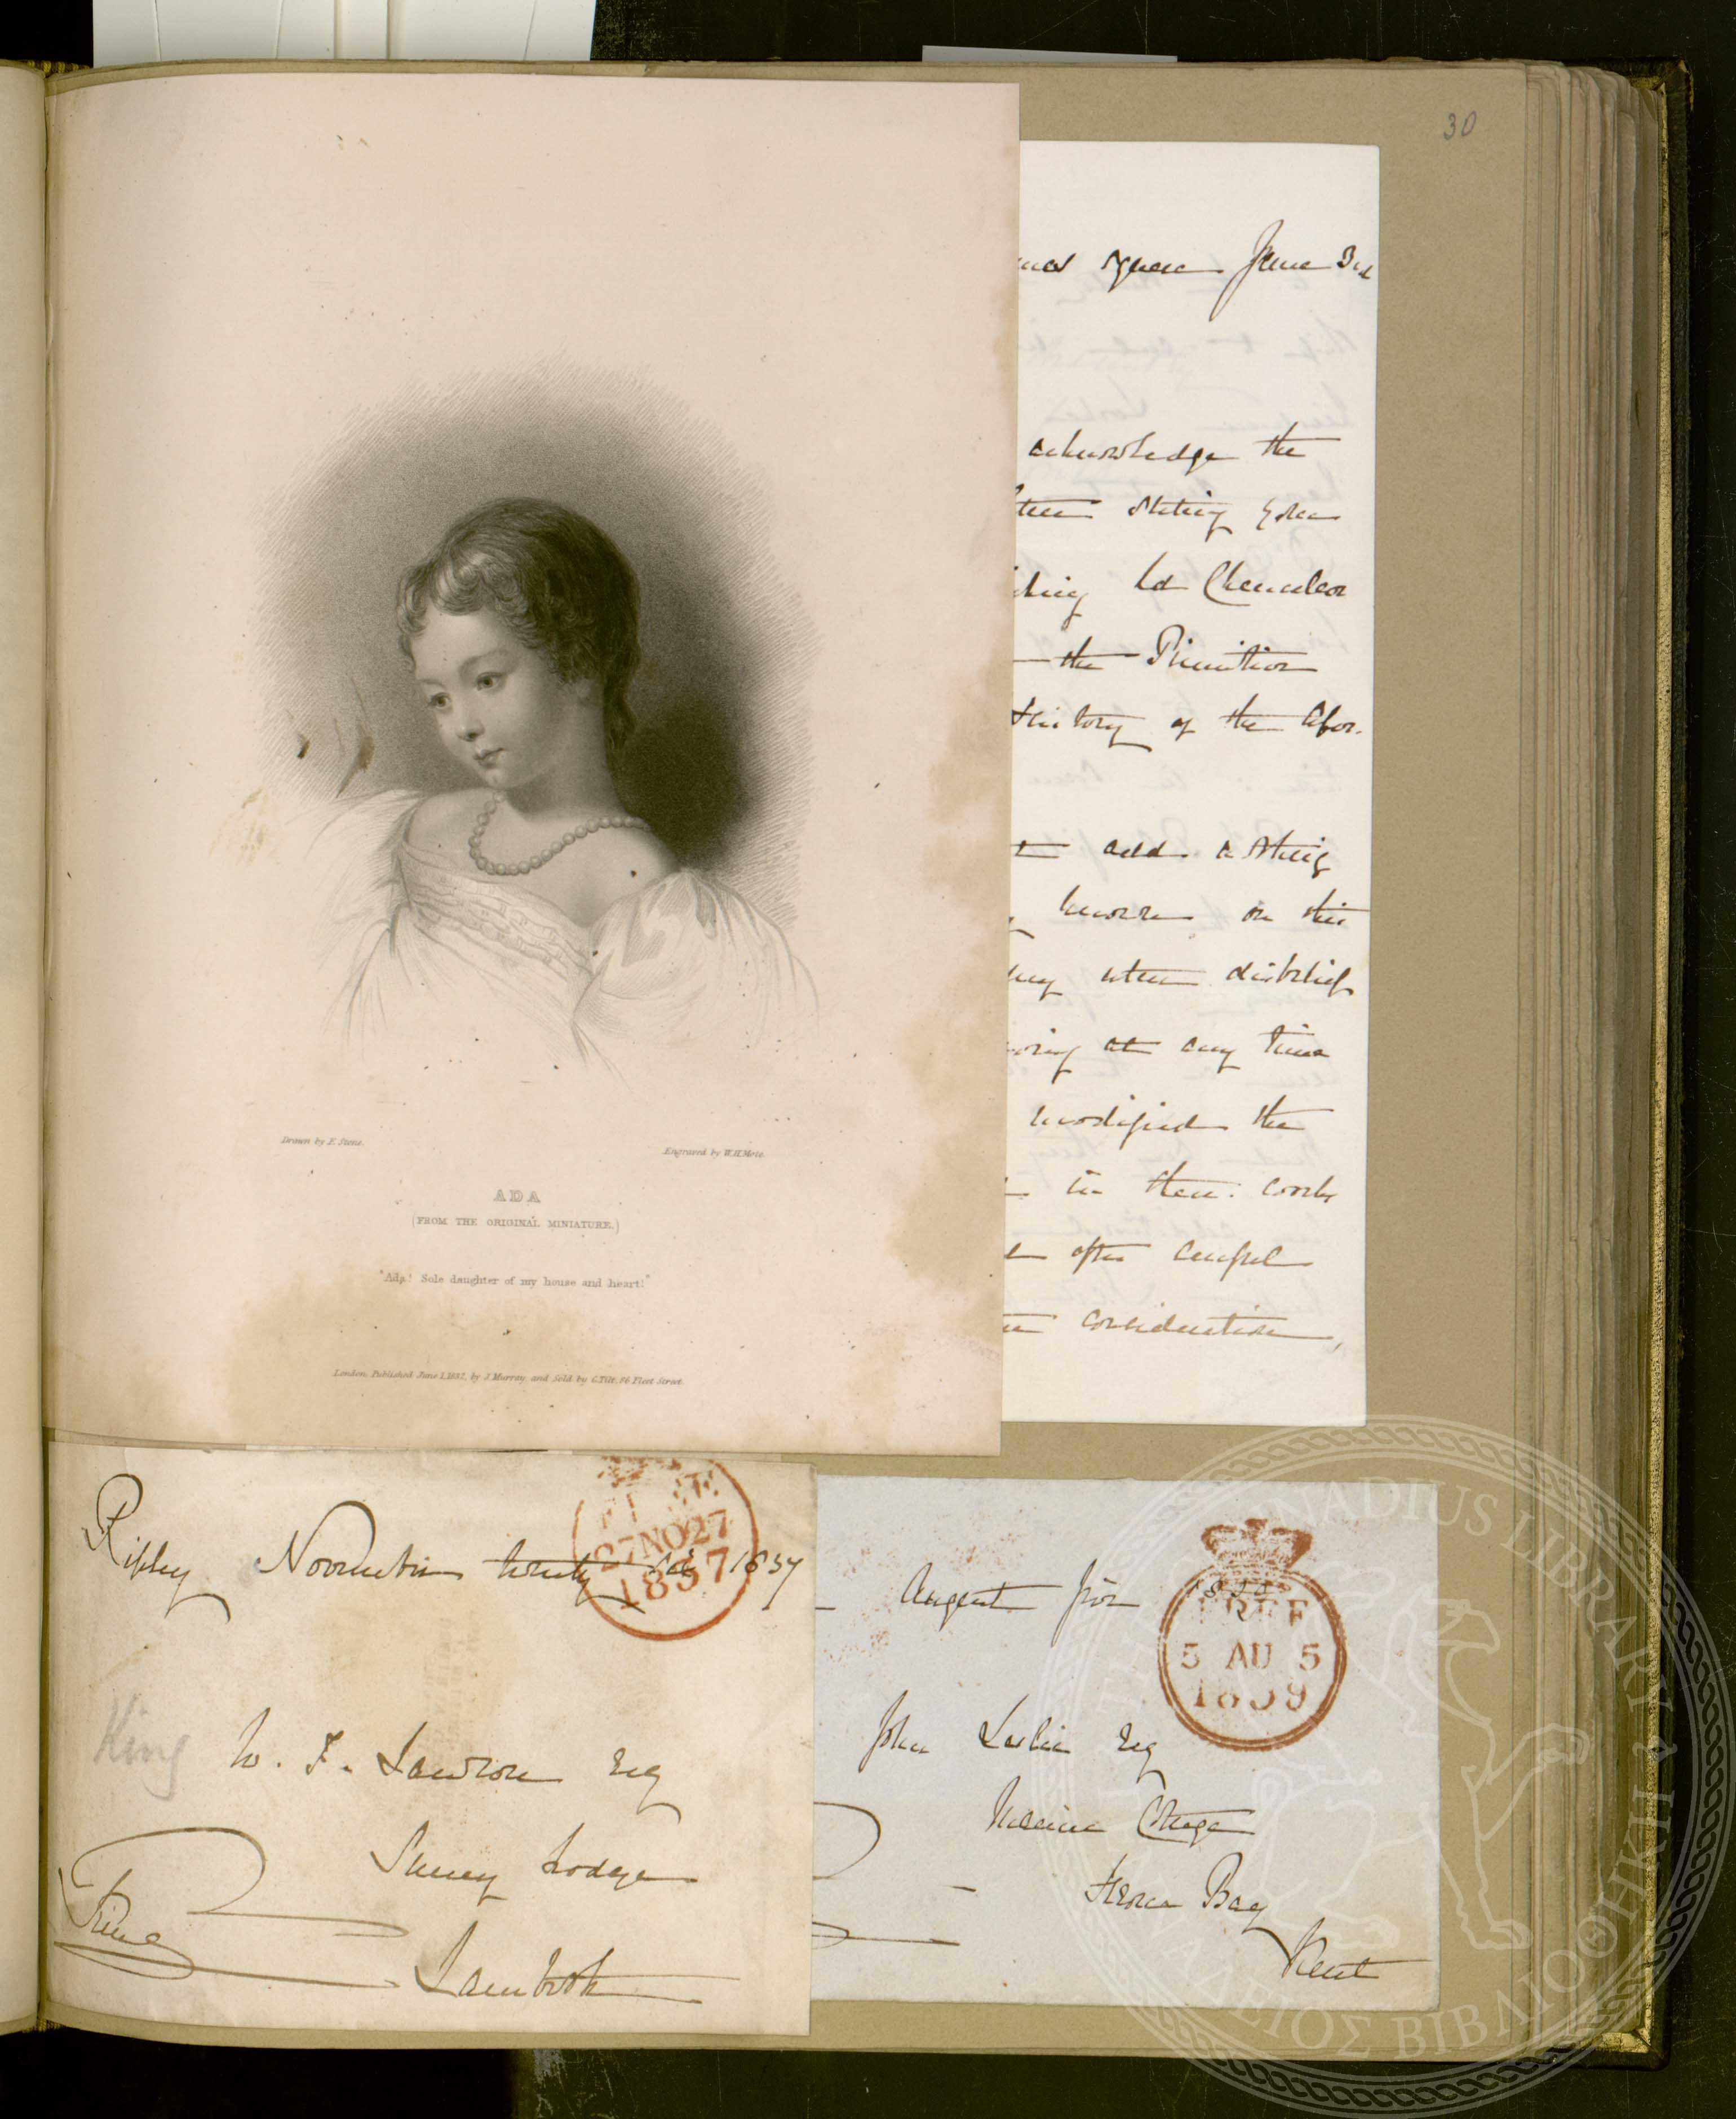 30
Square June 3rd
acknowledge the
stating your
Ld Chancelor
the Primitive
History of the
add a string
known on this
when disbelief
at any time
modified the
in their
after careful
consideration,
Drawn by F. Stone.
Engraved by W.H. Mote.
ADA
(FROM THE ORIGINAL MINIATURE.)
"Ada! Sole daughter of my house and heart!"
London, Published June 1, 1832, by J. Murray, and Sold by C. Tilt, 86 Fleet Street.
Ripley November twenty 1837
27 NO 27
1837
King W. F. Lawson Esq
Surrey Lodge
King
Lambeth
August five
FREE
5 AU 5
1839
John Leslie Esq
Marine Cottage
Herne Bay
Kent
THE GENNADIUS LIBRARY
ΓΕΝΝΑΔΕΙΟΣ ΒΙΒΛΙΟΘΗΚΗ